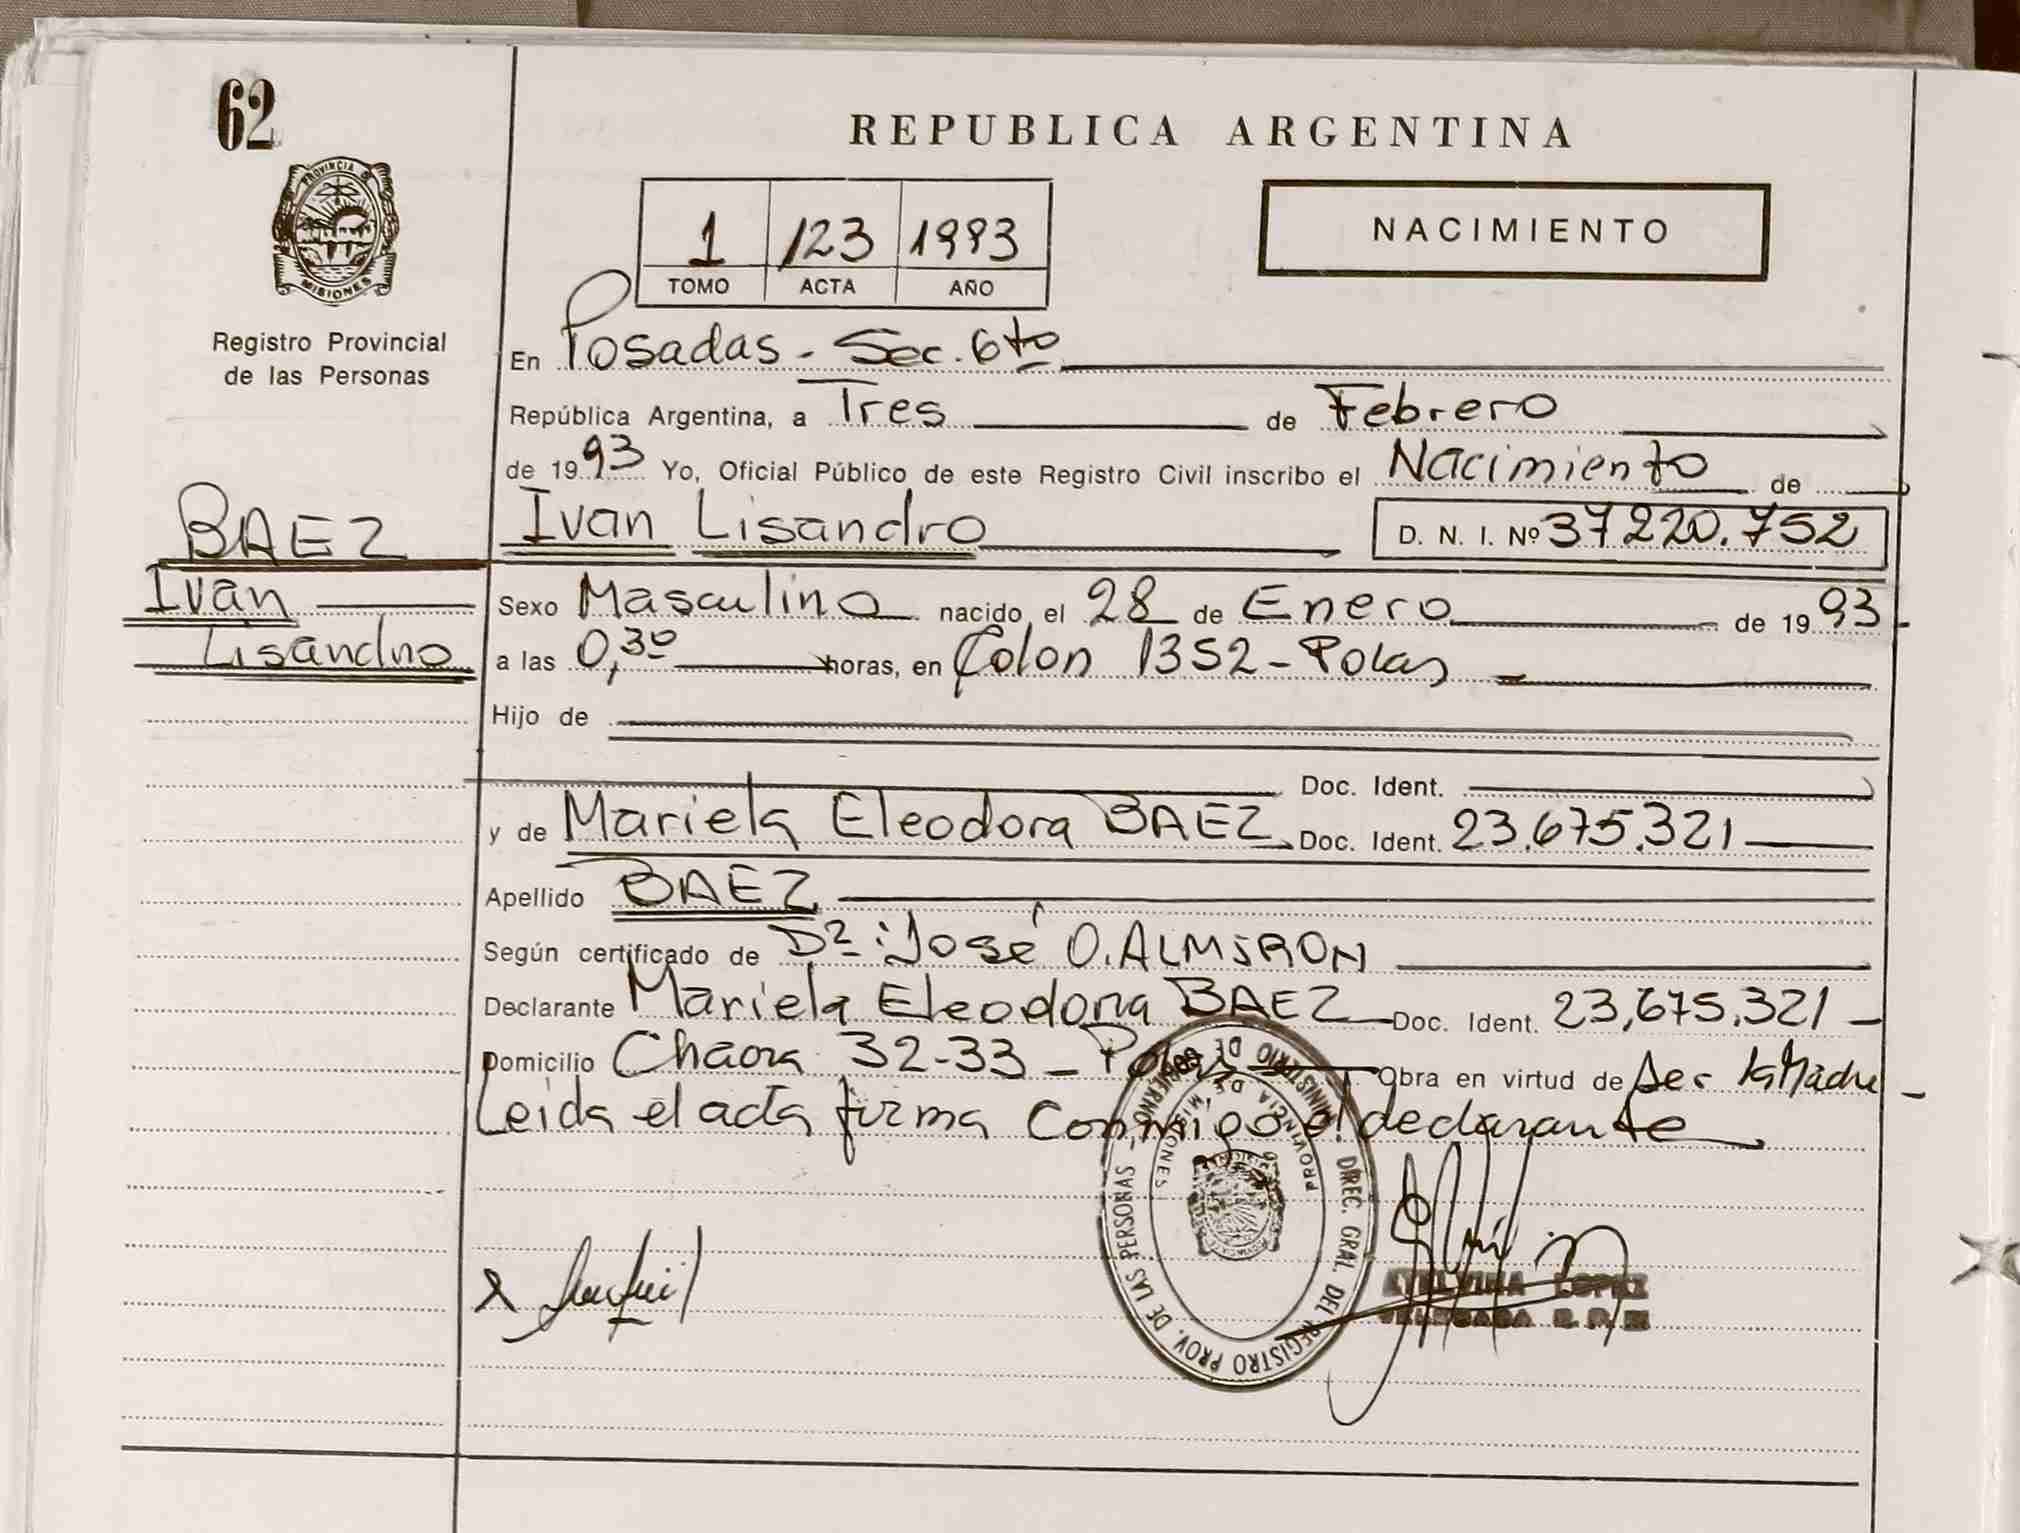 62
REPUBLICA ARGENTINA
NACIMIENTO
1 123 1993
TOMO ACTA AÑO
PROVINCIA DE
MISIONES
Registro Provincial
de las Personas
En Posadas - Sec. 6to
República Argentina, a Tres de Febrero
de 1993 Yo, Oficial Público de este Registro Civil inscribo el Nacimiento de
BAEZ
Ivan
Lisandro
Ivan Lisandro D. N. I. Nº 37220.752
Sexo Masculino nacido el 28 de Enero de 1993
a las 0,30 horas, en Colon 1352 - Pdas
Hijo de
Doc. Ident.
y de Mariela Eleodora BAEZ Doc. Ident. 23.675.321
Apellido BAEZ
Según certificado de Dr: José O. ALMIRON
Declarante Mariela Eleodora BAEZ Doc. Ident. 23,675,321
Domicilio 32-33 - Pdas Obra en virtud de ser la Madre
Leida el acta firma conmigo el declarante
MINISTERIO DE GOBIERNO - DIREC. GRAL. DEL REGISTRO PROV. DE LAS PERSONAS
PROVINCIA DE MISIONES
LOPEZ